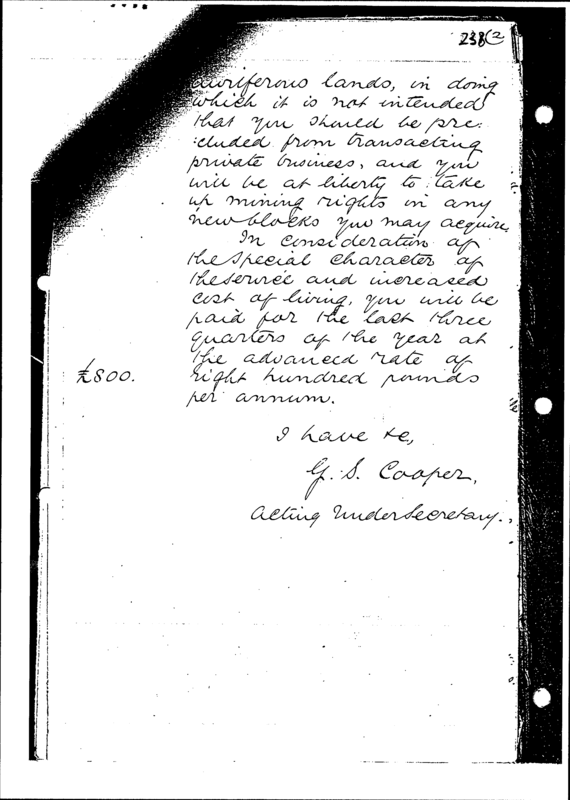 238(2)
auriferous lands, in doing
which it is not intended
that you should be pre:
:cluded from transacting
private business, and you
will be at liberty to take
up mining rights in any
new blocks you may acquire.
In consideration of
the special character of
the service and increased
cost of living, you will be
paid for the last three
quarters of the year at
the advanced rate of
£800.
eight hundred pounds
per annum.
I have &c,
G. S. Cooper,
Acting Under Secretary.